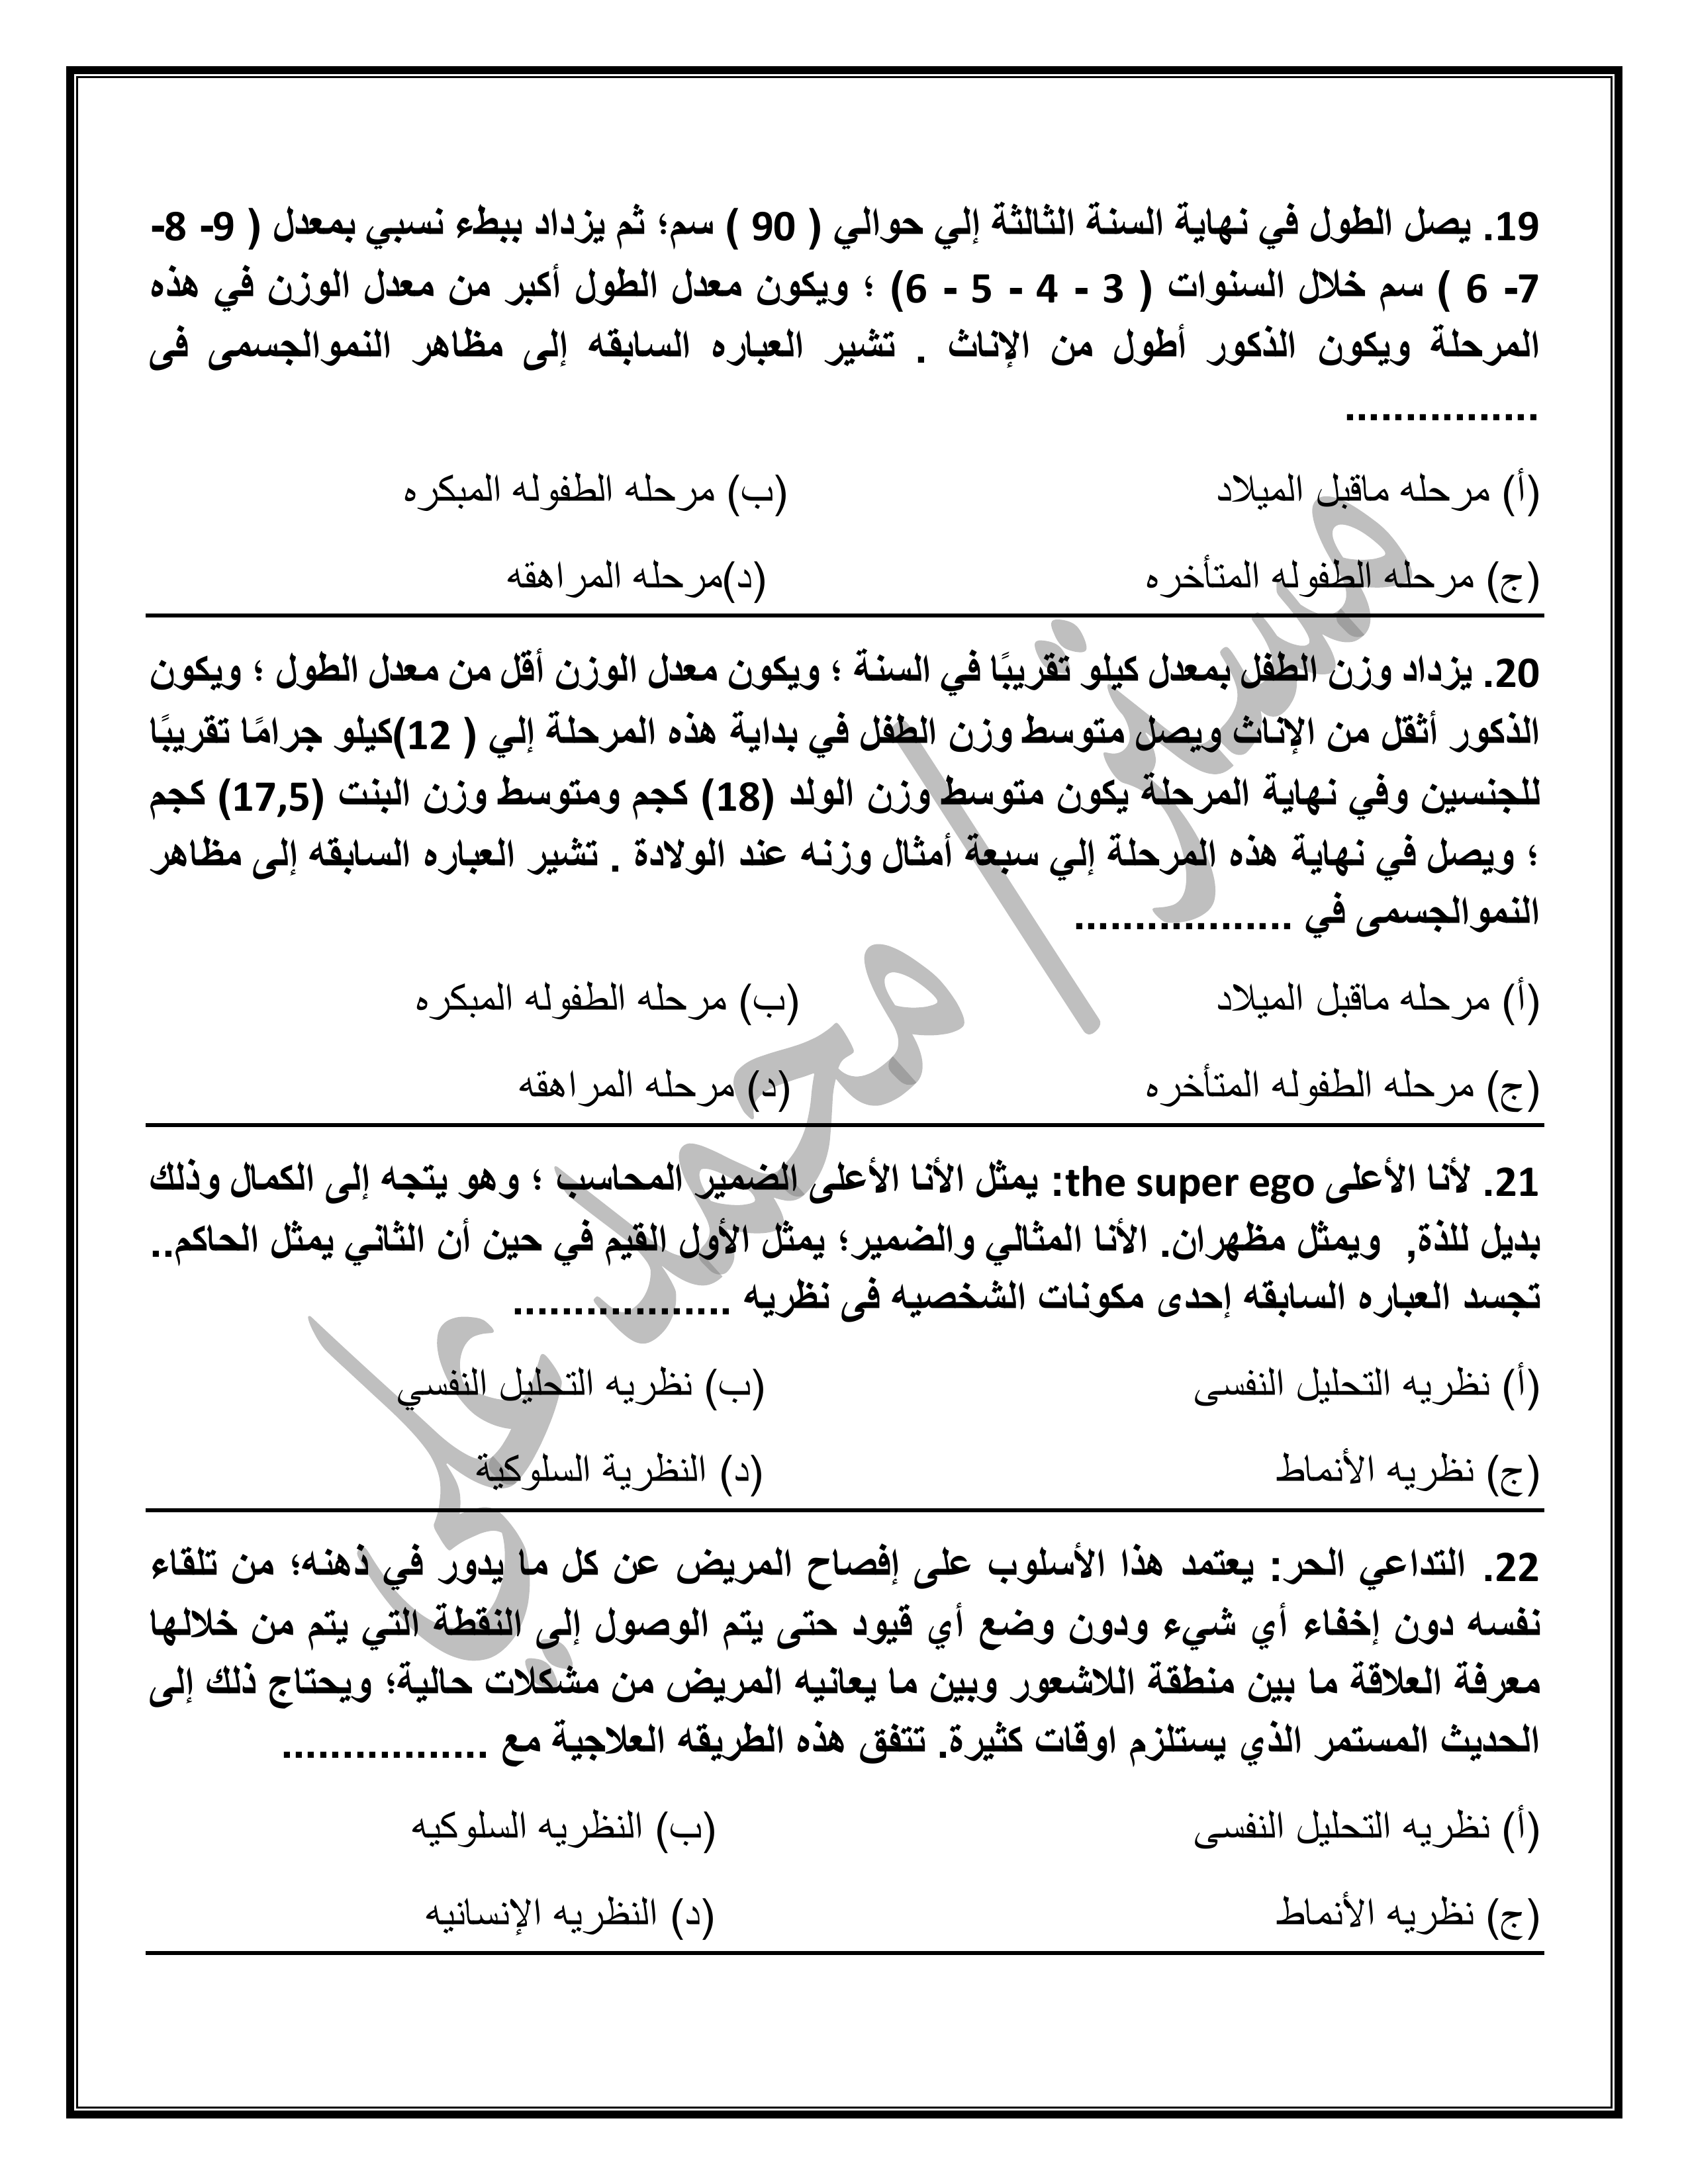 19. يصل الطول في نهاية السنة الثالثة إلي حوالي ( 90 ) سم؛ ثم يزداد ببطء نسبي بمعدل ( 9- 8-
7- 6 ) سم خلال السنوات ( 3 - 4 - 5 - 6) ؛ ويكون معدل الطول أكبر من معدل الوزن في هذه
المرحلة ويكون الذكور أطول من الإناث . تشير العباره السابقه إلى مظاهر النموالجسمى فى
................
(أ) مرحله ماقبل الميلاد (ب) مرحله الطفوله المبكره
(ج) مرحله الطفوله المتأخره (د)مرحله المراهقه
20. يزداد وزن الطفل بمعدل كيلو تقريبًا في السنة ؛ ويكون معدل الوزن أقل من معدل الطول ؛ ويكون
الذكور أثقل من الإناث ويصل متوسط وزن الطفل في بداية هذه المرحلة إلي ( 12)كيلو جرامًا تقريبًا
للجنسين وفي نهاية المرحلة يكون متوسط وزن الولد (18) كجم ومتوسط وزن البنت (17,5) كجم
؛ ويصل في نهاية هذه المرحلة إلي سبعة أمثال وزنه عند الولادة . تشير العباره السابقه إلى مظاهر
النموالجسمى في ..................
(أ) مرحله ماقبل الميلاد (ب) مرحله الطفوله المبكره
(ج) مرحله الطفوله المتأخره (د) مرحله المراهقه
21. لأنا الأعلى the super ego: يمثل الأنا الأعلى الضمير المحاسب ؛ وهو يتجه إلى الكمال وذلك
بديل للذة, ويمثل مظهران. الأنا المثالي والضمير؛ يمثل الأول القيم في حين أن الثاني يمثل الحاكم..
تجسد العباره السابقه إحدى مكونات الشخصيه فى نظريه ..................
(أ) نظريه التحليل النفسى (ب) نظريه التحليل النفسي
(ج) نظريه الأنماط (د) النظرية السلوكية
22. التداعي الحر: يعتمد هذا الأسلوب على إفصاح المريض عن كل ما يدور في ذهنه؛ من تلقاء
نفسه دون إخفاء أي شيء ودون وضع أي قيود حتى يتم الوصول إلى النقطة التي يتم من خلالها
معرفة العلاقة ما بين منطقة اللاشعور وبين ما يعانيه المريض من مشكلات حالية؛ ويحتاج ذلك إلى
الحديث المستمر الذي يستلزم اوقات كثيرة. تتفق هذه الطريقه العلاجية مع .................
(أ) نظريه التحليل النفسى (ب) النظريه السلوكيه
(ج) نظريه الأنماط (د) النظريه الإنسانيه
مستر/ محمد على